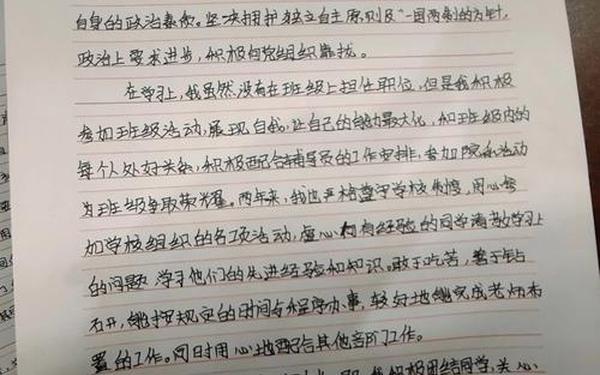 自身的政治素质。坚决拥护独立自主原则及“一国两制的方针,
政治上要求进步,积极向党组织靠拢。
在学习上,我虽然没有在班级上担任职位,但是我积极
参加班级活动,展现自我,让自己的能力最大化,和班级内的
每个人处好关系,积极配合辅导员的工作安排,参加院系活动
为班级争取荣耀。两年来,我也严格遵守学校制度,用心参
加学校组织的各项活动,虚心向有经验的同学请教学习上
的问题,学习他们的先进经验和知识。敢于吃苦,善于钻
研,能按规定的时间与程序办事,较好地能完成老师布
置的工作。同时用心地配合其他部门工作。
我积极团结同学,关心